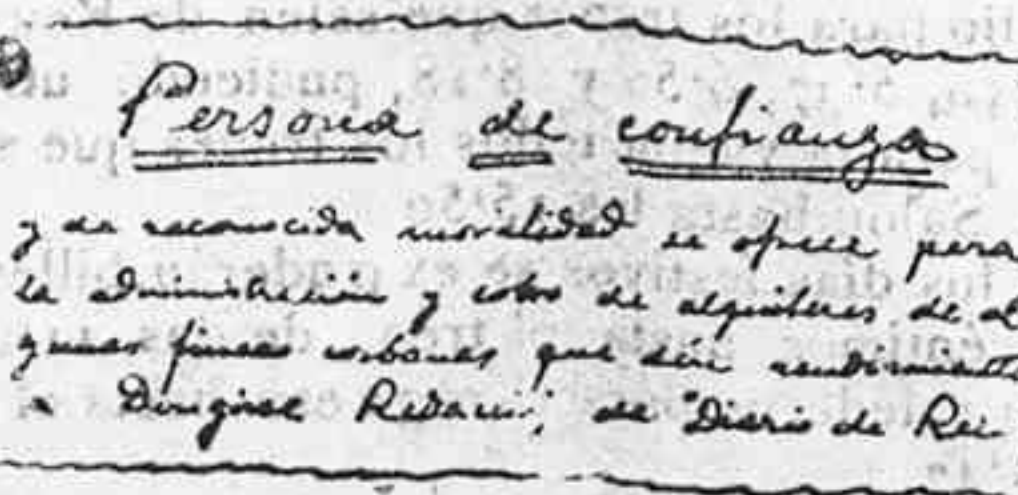 Persona de confianza
y de reconocida moralidad se ofrece para
la administración y cobro de alquileres de al
gunas fincas urbanas que dén rendimiento
Dirigirse Redacción de "Diario de Reu